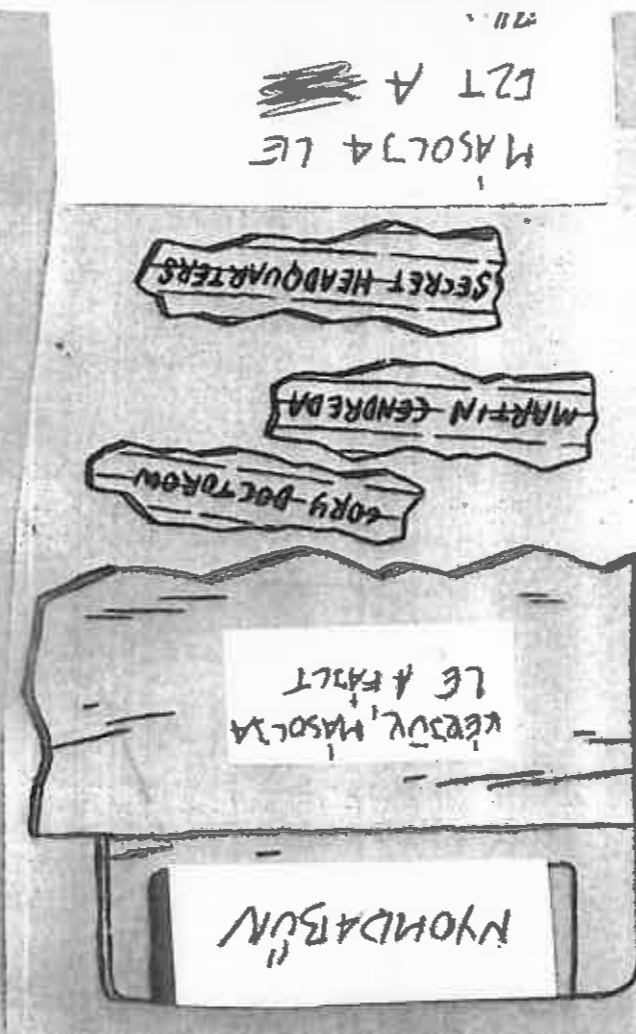 NYOMDABŰN
KÉRJÜK, MÁSOLJA
LE A FÁJLT
CORY DOCTOROW
MARTIN CENDREDA
SECRET HEADQUARTERS
MÁSOLJA LE
EZT A